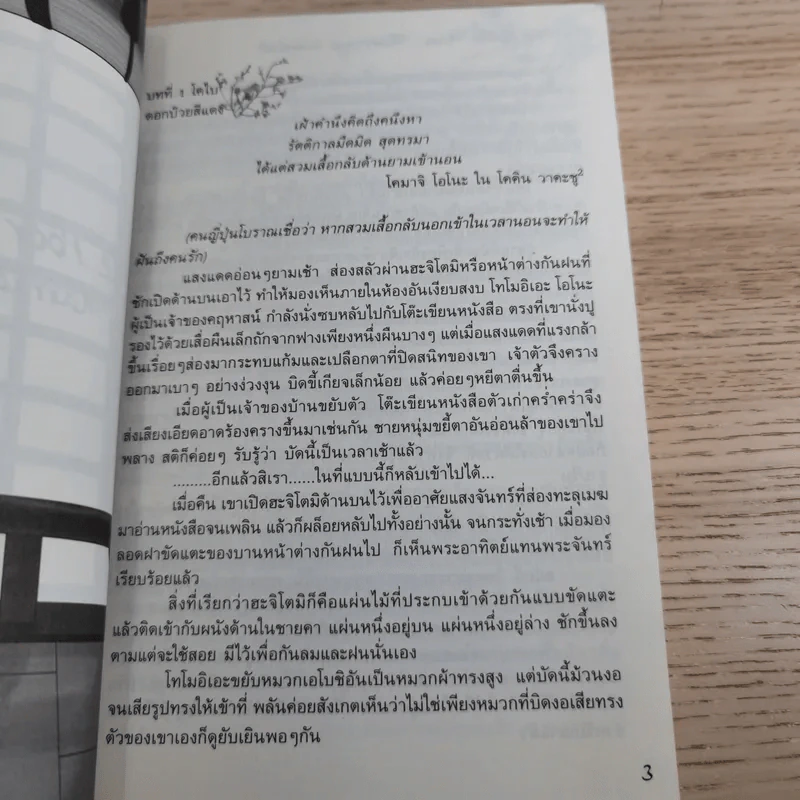 บทที่ 1 โคไบ
ดอกบ๊วยสีแดง
เฝ้าคำนึงคิดถึงคนึงหา
รัตติกาลมืดมิด สุดทรมา
ได้แต่สวมเสื้อกลับด้านยามเข้านอน
โคมาจิ โอโนะ ใน โคคิน วาคะชู2
(คนญี่ปุ่นโบราณเชื่อว่า หากสวมเสื้อกลับนอกเข้าในเวลานอนจะทำให้
ฝันถึงคนรัก)
แสงแดดอ่อนๆยามเช้า ส่องสลัวผ่านฮะจิโตมิหรือหน้าต่างกันฝนที่
ชักเปิดด้านบนเอาไว้ ทำให้มองเห็นภายในห้องอันเงียบสงบ โทโมอิเอะ โอโนะ
ผู้เป็นเจ้าของคฤหาสน์ กำลังนั่งซบหลับไปกับโต๊ะเขียนหนังสือ ตรงที่เขานั่งปู
รองไว้ด้วยเสื่อผืนเล็กถักจากฟางเพียงหนึ่งผืนบางๆ แต่เมื่อแสงแดดที่แรงกล้า
ขึ้นเรื่อยๆส่องมากระทบแก้มและเปลือกตาที่ปิดสนิทของเขา เจ้าตัวจึงคราง
ออกมาเบาๆ อย่างง่วงงุน บิดขี้เกียจเล็กน้อย แล้วค่อยๆหยีตาตื่นขึ้น
เมื่อผู้เป็นเจ้าของบ้านขยับตัว โต๊ะเขียนหนังสือตัวเก่าคร่ำคร่าจึง
ส่งเสียงเอียดอาดร้องครางขึ้นมาเช่นกัน ชายหนุ่มขยี้ตาอันอ่อนล้าของเขาไป
พลาง สติก็ค่อยๆ รับรู้ว่า บัดนี้เป็นเวลาเช้าแล้ว
.........อีกแล้วสิเรา.....ในที่แบบนี้ก็หลับเข้าไปได้...
เมื่อคืน เขาเปิดฮะจิโตมิด้านบนไว้เพื่ออาศัยแสงจันทร์ที่ส่องทะลุเมฆ
มาอ่านหนังสือจนเพลิน แล้วก็ผล็อยหลับไปทั้งอย่างนั้น จนกระทั่งเช้า เมื่อมอง
ลอดฝาขัดแตะของบานหน้าต่างกันฝนไป ก็เห็นพระอาทิตย์แทนพระจันทร์
เรียบร้อยแล้ว
สิ่งที่เรียกว่าฮะจิโตมิก็คือแผ่นไม้ที่ประกบเข้าด้วยกันแบบขัดแตะ
แล้วติดเข้ากับผนังด้านในชายคา แผ่นหนึ่งอยู่บน แผ่นหนึ่งอยู่ล่าง ชักขึ้นลง
ตามแต่จะใช้สอย มีไว้เพื่อกันลมและฝนนั่นเอง
โทโมอิเอะขยับหมวกเอโบชิอันเป็นหมวกผ้าทรงสูง แต่บัดนี้ม้วนงอ
จนเสียรูปทรงให้เข้าที่ พลันค่อยสังเกตเห็นว่าไม่ใช่เพียงหมวกที่บิดงอเสียทรง
ตัวของเขาเองก็ดูยับเยินพอๆกัน
3